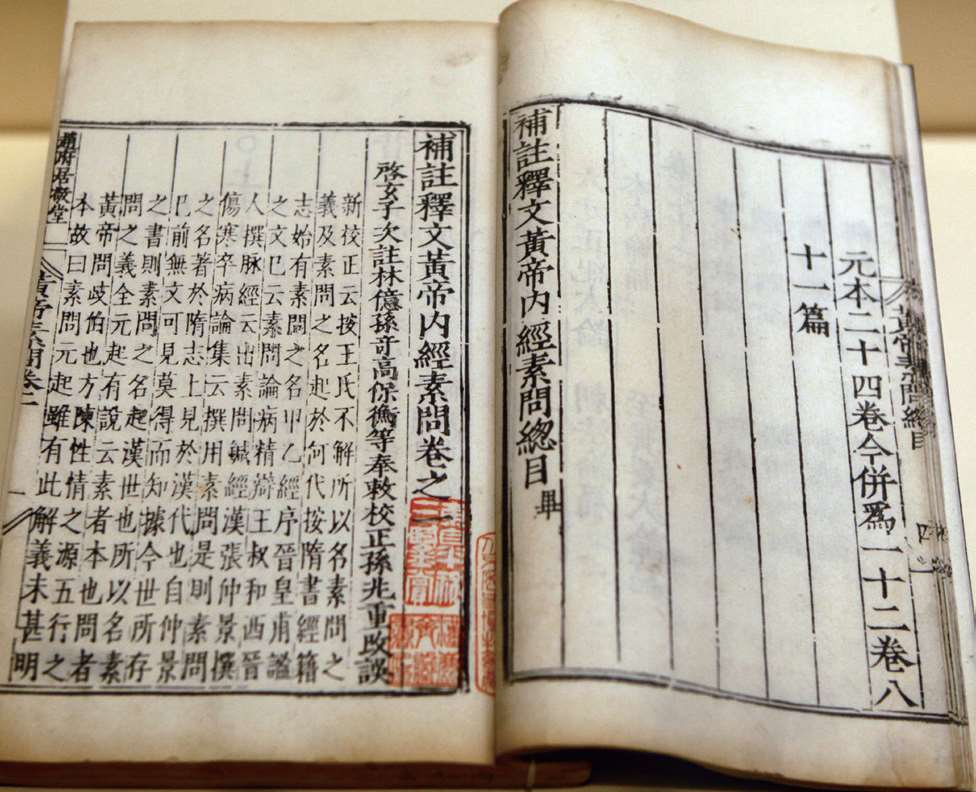 元本二十四卷今併爲一十二卷八
十一篇
補註釋文黃帝內經素問總目 畢
補註釋文黃帝內經素問卷之一
啓玄子次註林億孫竒高保衡等奉敕校正孫兆重改誤
新校正云按王氏不解所以名素問之
義及素問之名起於何代按隋書經籍
志始有素問之名甲乙經序晉皇甫謐
之文已云素問論病精辯王叔和西晉
人撰脉經云出素問鍼經漢張仲景撰
傷寒卒病論集云撰用素問是則素問
之名著於隋志上見於漢代也自仲景
已前無文可見莫得而知據今世所存
之書則素問之名起漢世也所以名素
問之義全元起有說云素者本也問者
黃帝問歧伯也方陳性情之源五行之
本故曰素問元起雖有此解義未甚明
趙府居敬堂
黃帝素問卷一
黃帝素問總目